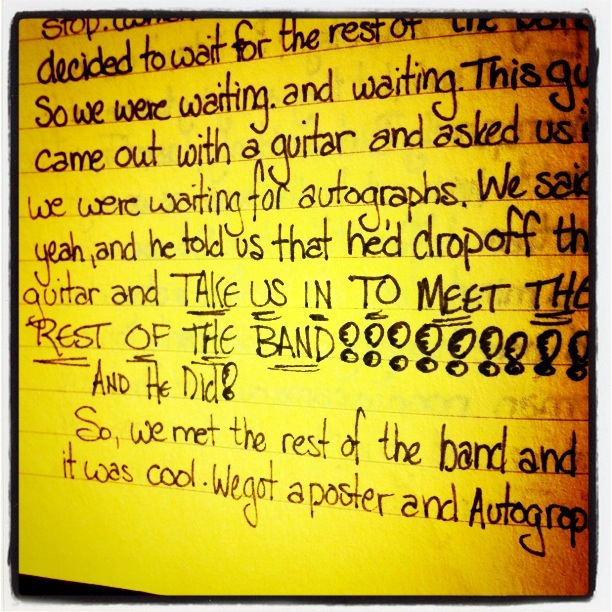 stop.
decided to wait for the rest of the
So we were waiting. and waiting. This gu
came out with a guitar and asked us i
we were waiting for autographs. We said
yeah, and he told us that he'd drop off th
guitar and TAKE US IN TO MEET THE
REST OF THE BAND!!!!!!!!!
AND HE DID!
So, we met the rest of the band and
it was cool. We got a poster and Autograp